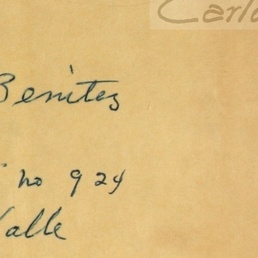 Carlo
Benitez
no 924
Valle